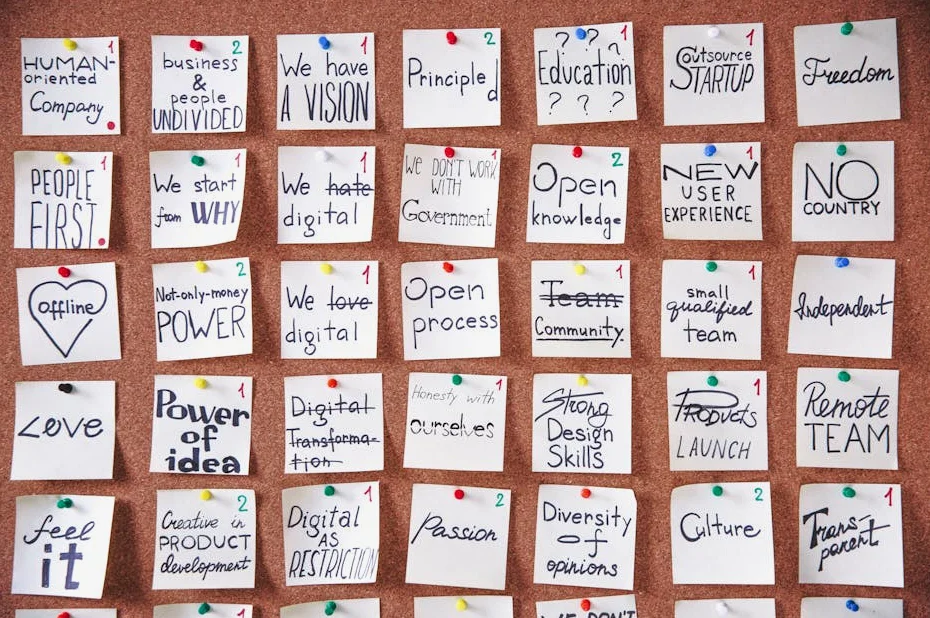 1
HUMAN-
oriented
Company
2
business
&
people
UNDIVIDED
1
We have
A VISION
2
Principled
1
? ? ?
Education
? ? ?
1
Outsource
STARTUP
Freedom
1
PEOPLE
FIRST
1
We start
from WHY
1
We hate
digital
1
WE DON'T WORK
WITH
Government
2
Open
knowledge
1
NEW
USER
EXPERIENCE
NO
COUNTRY
offline
2
Not-only-money
POWER
1
We love
digital
Open
process
1
Team
Community.
1
small
qualified
team
Independent
Love
1
Power
of
idea
Digital
Transforma-
tion
1
Honesty with
ourselves
Strong
Design
Skills
1
Products
LAUNCH
Remote
TEAM
feel
it
2
Creative in
PRODUCT
development
1
Digital
AS
RESTRICTION
2
Passion
Diversity
of
opinions
2
Culture
1
Trans-
parent
WE DON'T